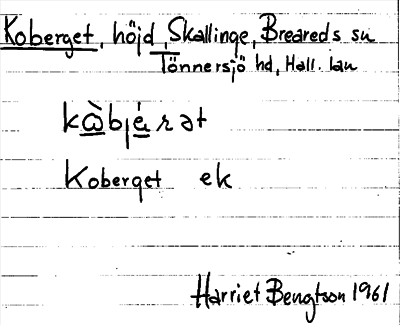 Koberget, höjd, Skallinge, Breareds sn
Tönnersjö hd, Hall. län
kɷ̀bjérət
Koberget ek
Harriet Bengtson 1961